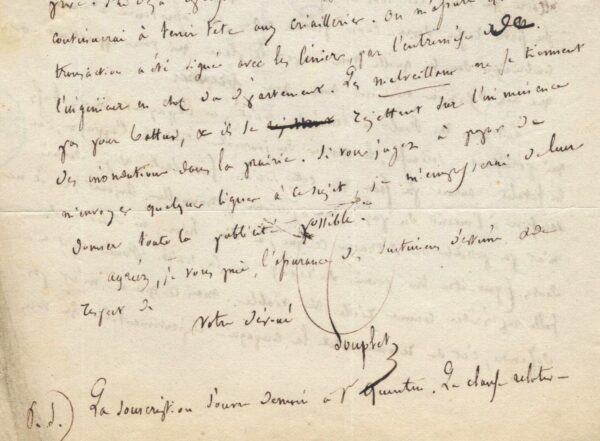 continuerai à tenir tête aux criailleries. On m'assure qu
transaction a été signée avec les liniers, par l'entremise de
l'ingénieur en chef du département. Les malveillans ne se tiennent
pas pour battus, & ils se rejettent sur l'imminence
des inondations dans la prairie. Si vous jugez à propos de
m'envoyer quelques lignes à ce sujet, je m'empresserai de leur
donner toute la publicité possible.
agréez, je vous prie, l'assurance des sentimens d'estime & de
respect de
votre dévoué
Souplet
P. S.) La souscription s'ouvre demain à St Quentin. La clause relative